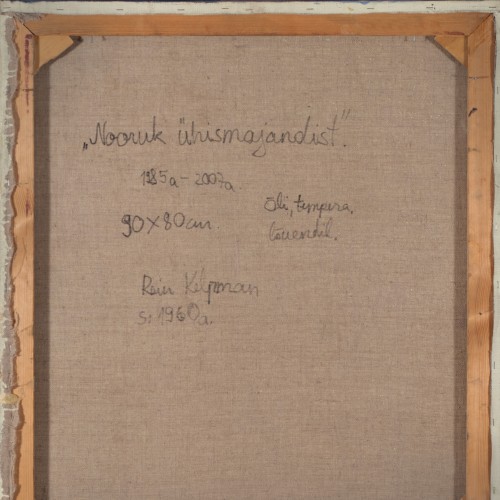 „Nooruk ühismajandist”.
1985a – 2007a.
Õli, tempera,
90x80cm
lõuendil.
Rein Kelpman
s: 1960a.